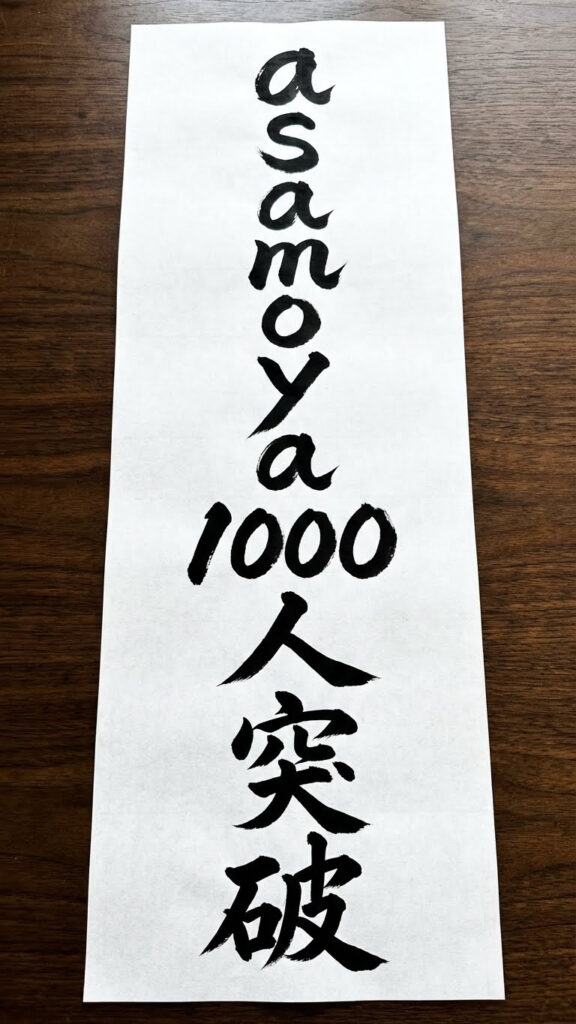 asamoya1000人突破